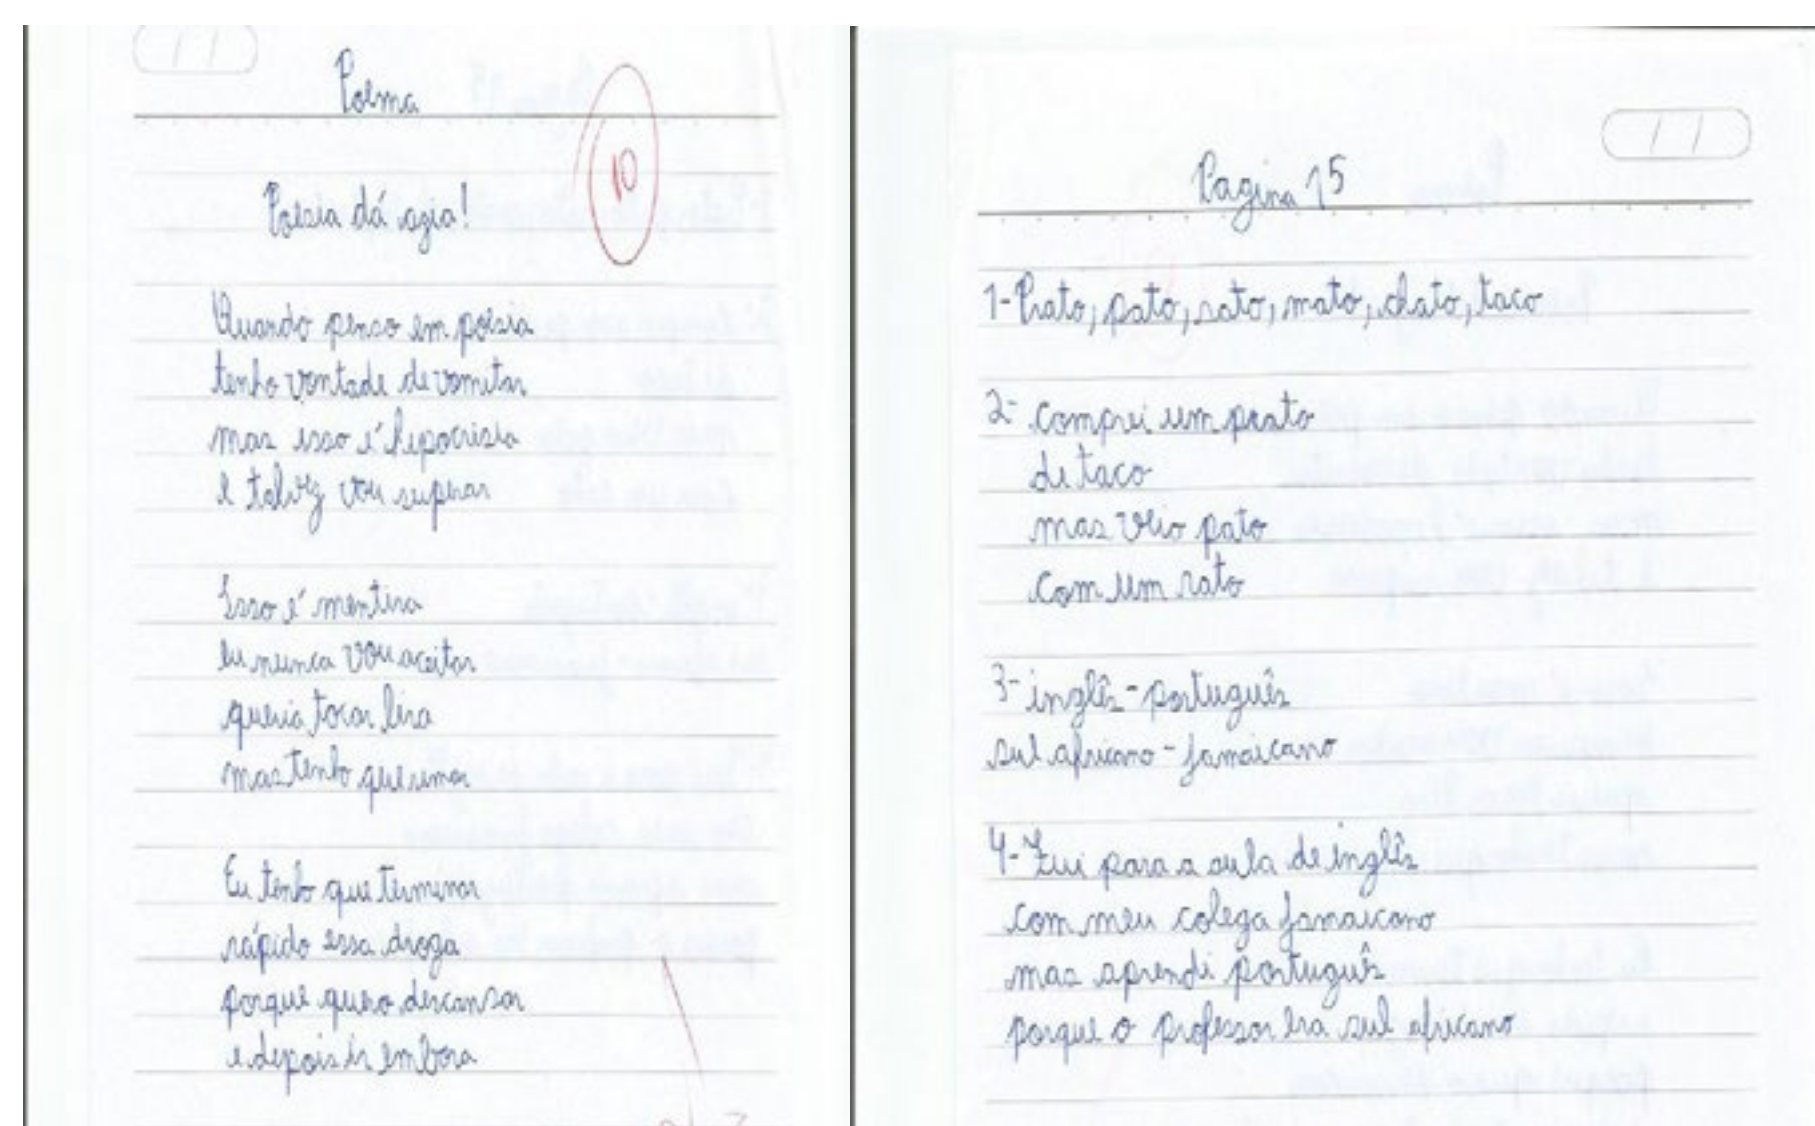 Poema
10
Poesia dá azia!
Quando penso em poesia
tenho vontade de vomitar
mas isso é hepocrisia
e talvez vou superar
Isso é mentira
eu nunca vou aceitar
queria tocar lira
mas tenho que rimar
Eu tenho que terminar
rápido essa droga
porque quero descansar
e depois ir embora
Pagina 15
1- Prato, pato, rato, mato, chato, taco
2- Comprei um prato
de taco
mas veio pato
com um rato
3- inglês - português
sul africano - jamaicano
4- Fui para a aula de inglês
com meu colega jamaicano
mas aprendi português
porque o professor era sul africano